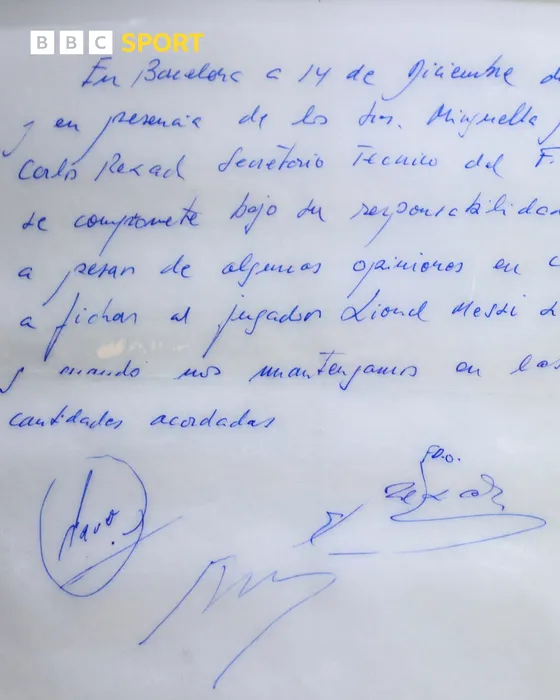 BBC SPORT
En Barcelona a 14 de Diciembre d
y en presencia de los Srs. Minguella
Carlos Rexach Secretario Técnico del F.
se compromete bajo su responsabilidad
a pesar de algunas opiniones en c
a fichar al jugador Lionel Messi
y cuando nos mantengamos en las
cantidades acordadas
fdo.
Rexach